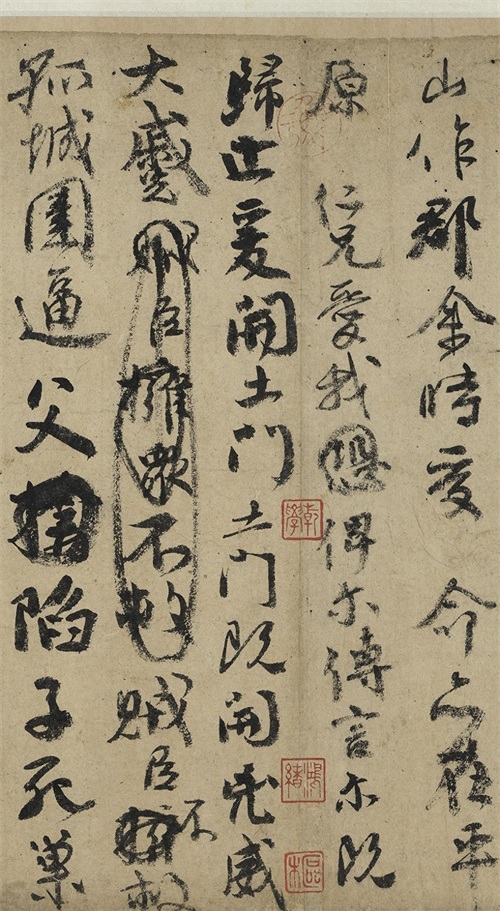 山作郡余時受 命亦在平
原 仁兄愛我俾尔傳言尔既
歸止爰開土門土門既開兇威
大蹙賊臣擁眾不救賊臣不救
孤城圍逼父陷子死巢
乾學